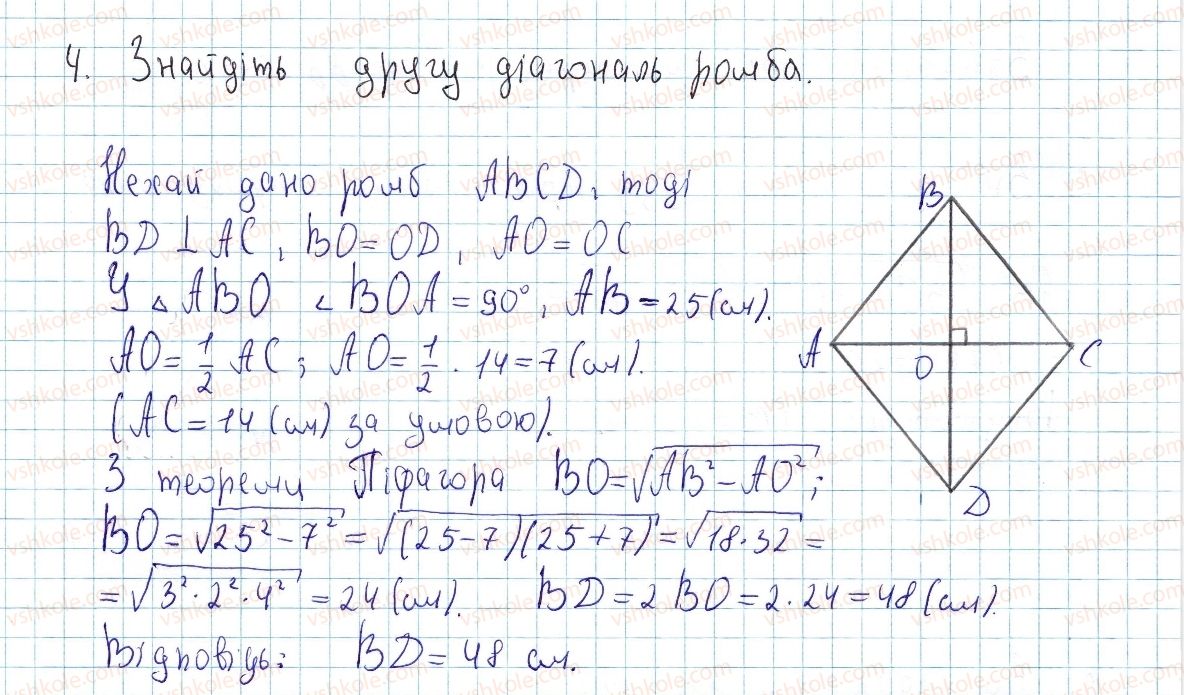 4. Знайдіть другу діагональ ромба.
Нехай дано ромб ABCD, тоді
BD ⊥ AC, BO = OD, AO = OC
У △ ABO ∠ BOA = 90°, AB = 25 (см).
AO = 1/2 AC; AO = 1/2 · 14 = 7 (см).
(AC = 14 (см) за умовою).
З теореми Піфагора BO = √(AB² − AO²);
BO = √(25² − 7²) = √((25 − 7)(25 + 7)) = √(18 · 32) =
= √(3² · 2² · 4²) = 24 (см). BD = 2 BO = 2 · 24 = 48 (см).
Відповідь: BD = 48 см.
B
A
O
C
D
vshkole.com